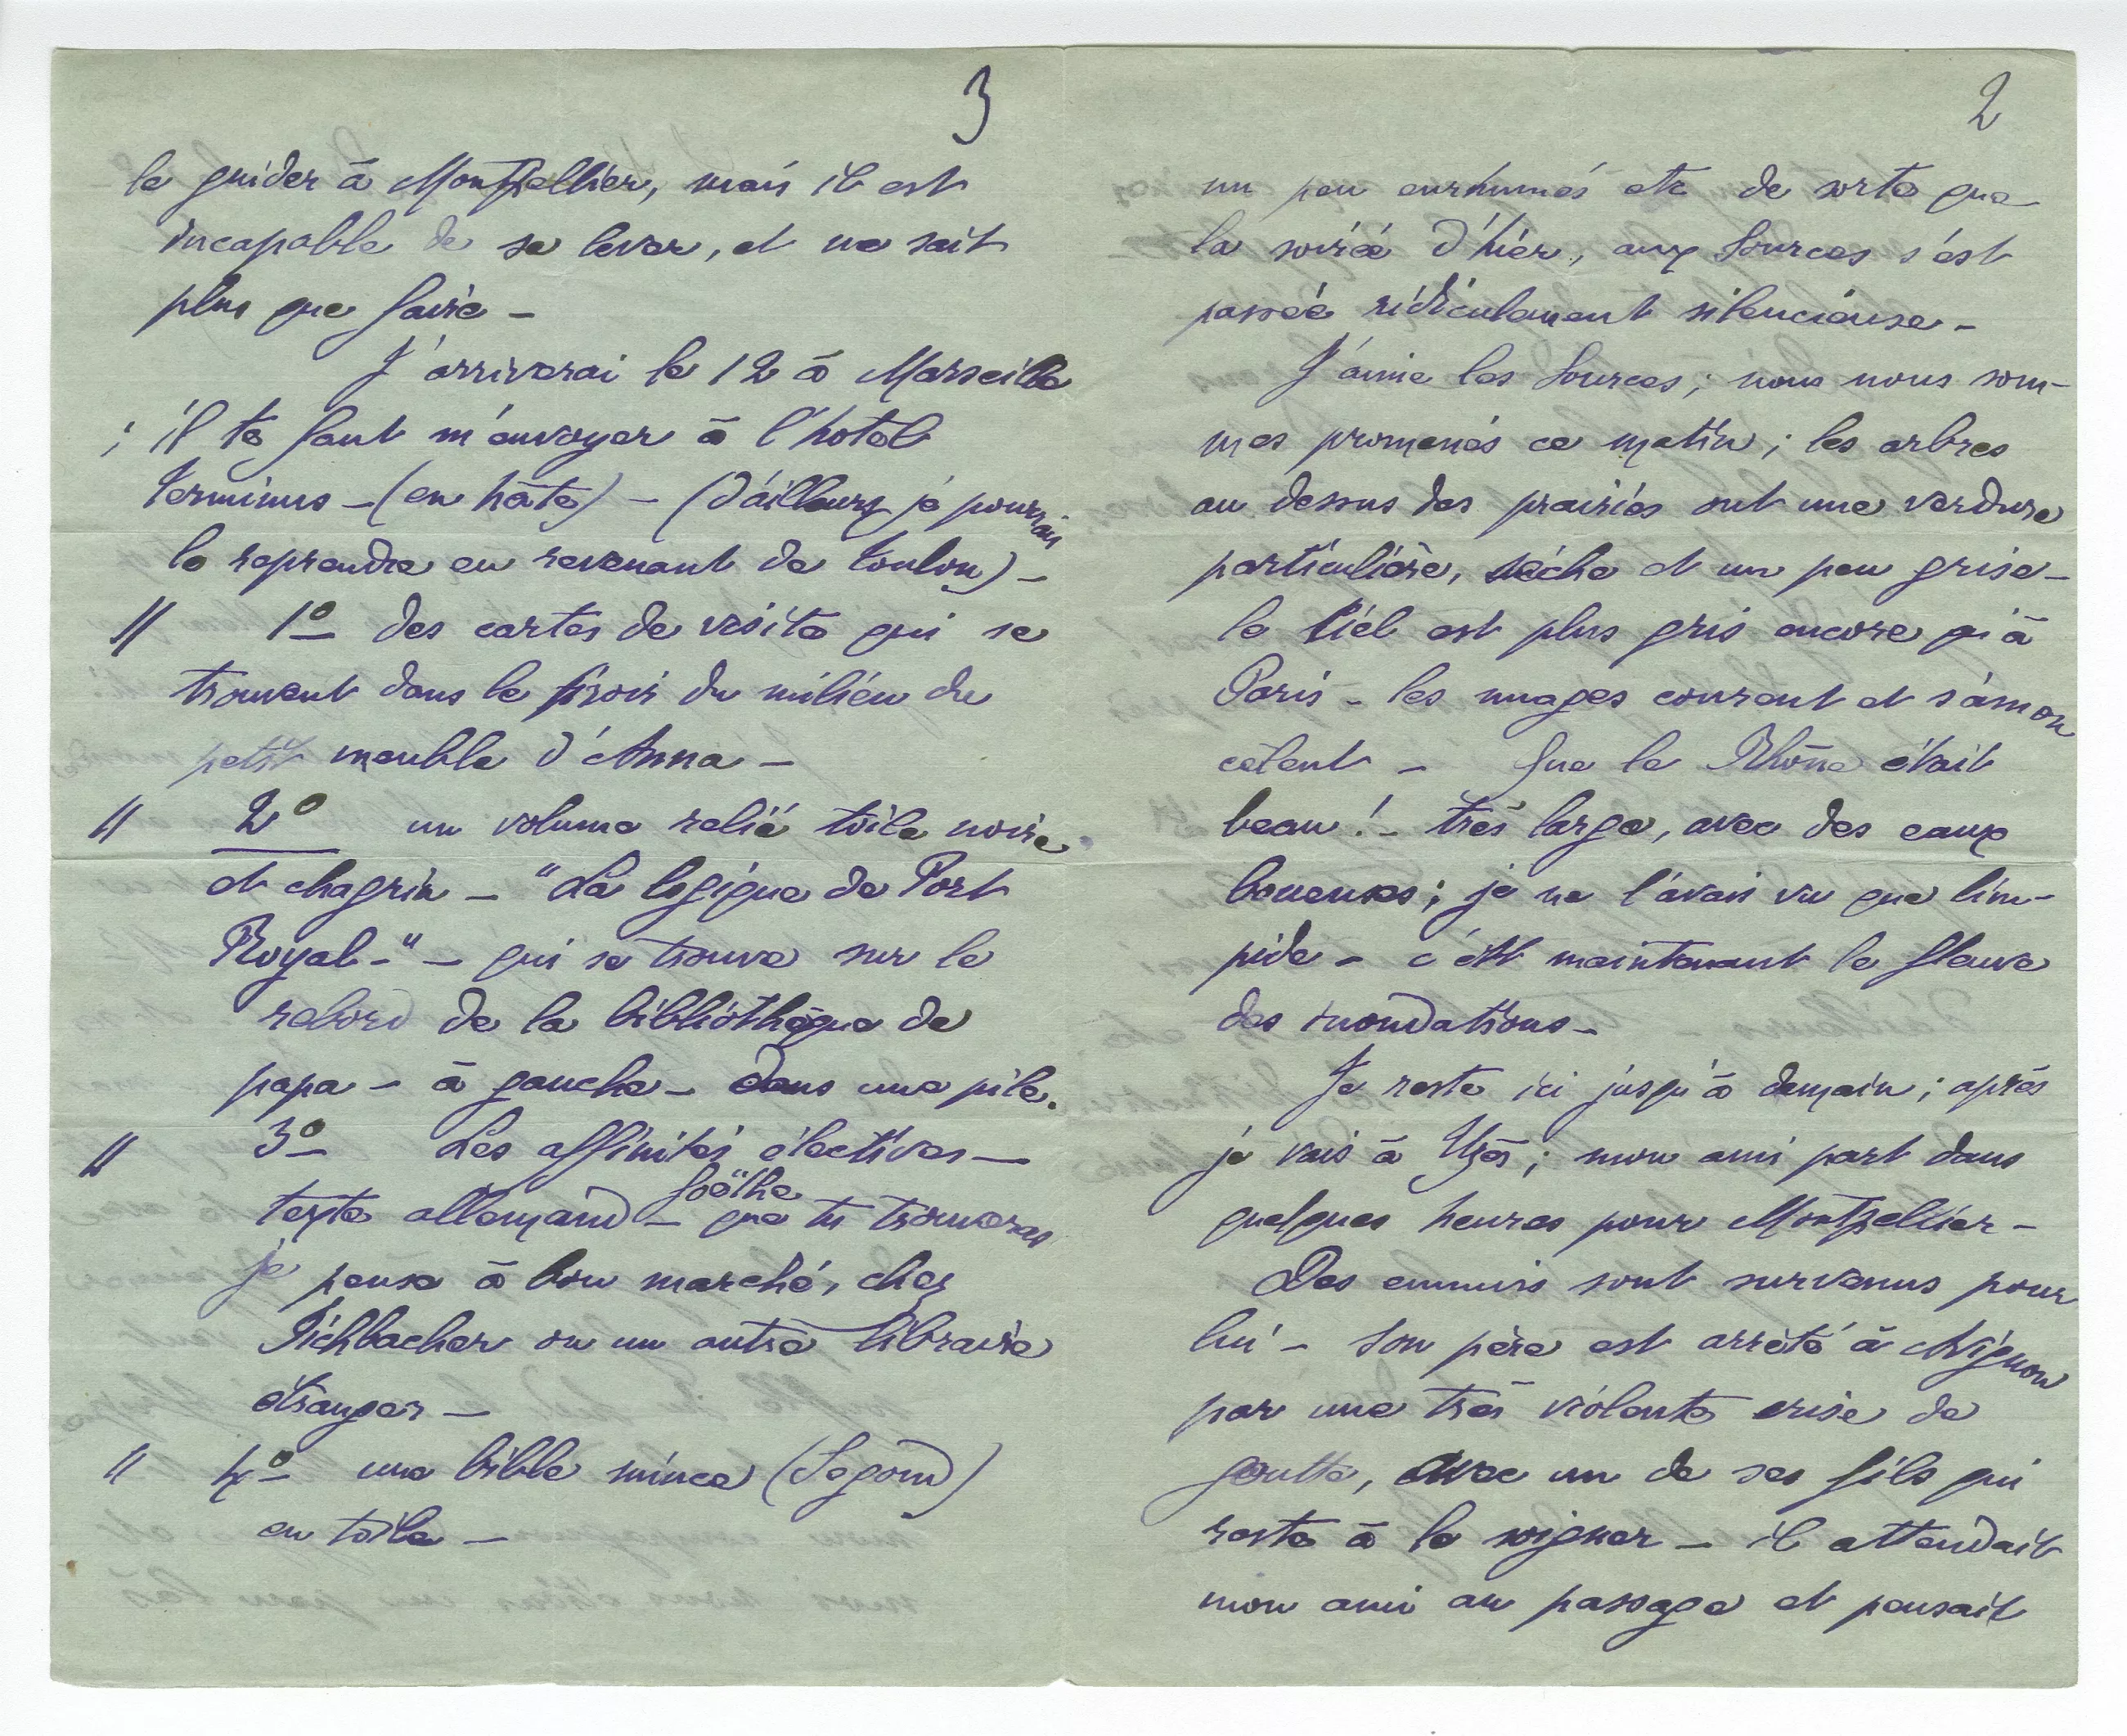 2
un peu enrhumés etc de sorte que
la soirée d'hier, aux Sources s'est
passée ridiculement silencieuse -
J'aime les Sources ; nous nous som-
mes promenés ce matin ; les arbres
au dessus des prairies ont une verdure
particulière, sèche et un peu grise -
le Ciel est plus gris encore qu'à
Paris - les nuages courent et s'amon
cèlent - Que le Rhône était
beau ! - très large, avec des eaux
boueuses ; je ne l'avais vu que lim-
pide - c'est maintenant le fleuve
des inondations -
Je reste ici jusqu'à demain ; après
je vais à Uzès ; mon ami part dans
quelques heures pour Montpellier -
Des ennuis sont survenus pour
lui - Son père est arrêté à Avignon
par une très violente crise de
goutte, avec un de ses fils qui
reste à le soigner - il attendait
mon ami au passage et pensait
3
le guider à Montpellier, mais il est
incapable de se lever, et ne sait
plus que faire -
J'arriverai le 12 à Marseille
; il te faut m'envoyer à l'hotel
Terminus - (en hâte) - (d'ailleurs je pourrais
le reprendre en revenant de Toulon) -
// 1o des cartes de visite qui se
trouvent dans le tiroir du milieu du
petit meuble d'Anna -
// 2o un volume relié toile noire
et chagrin - "La logique de Port
Royal - " - qui se trouve sur le
rebord de la bibliothèque de
papa - à gauche - dans une pile.
// 3o Les affinités électives -
Goëthe
texte allemand - que tu trouveras
je pense à bon marché, chez
Fichbacher ou un autre libraire
étranger -
// 4o une bible mince (Segond)
en toile -